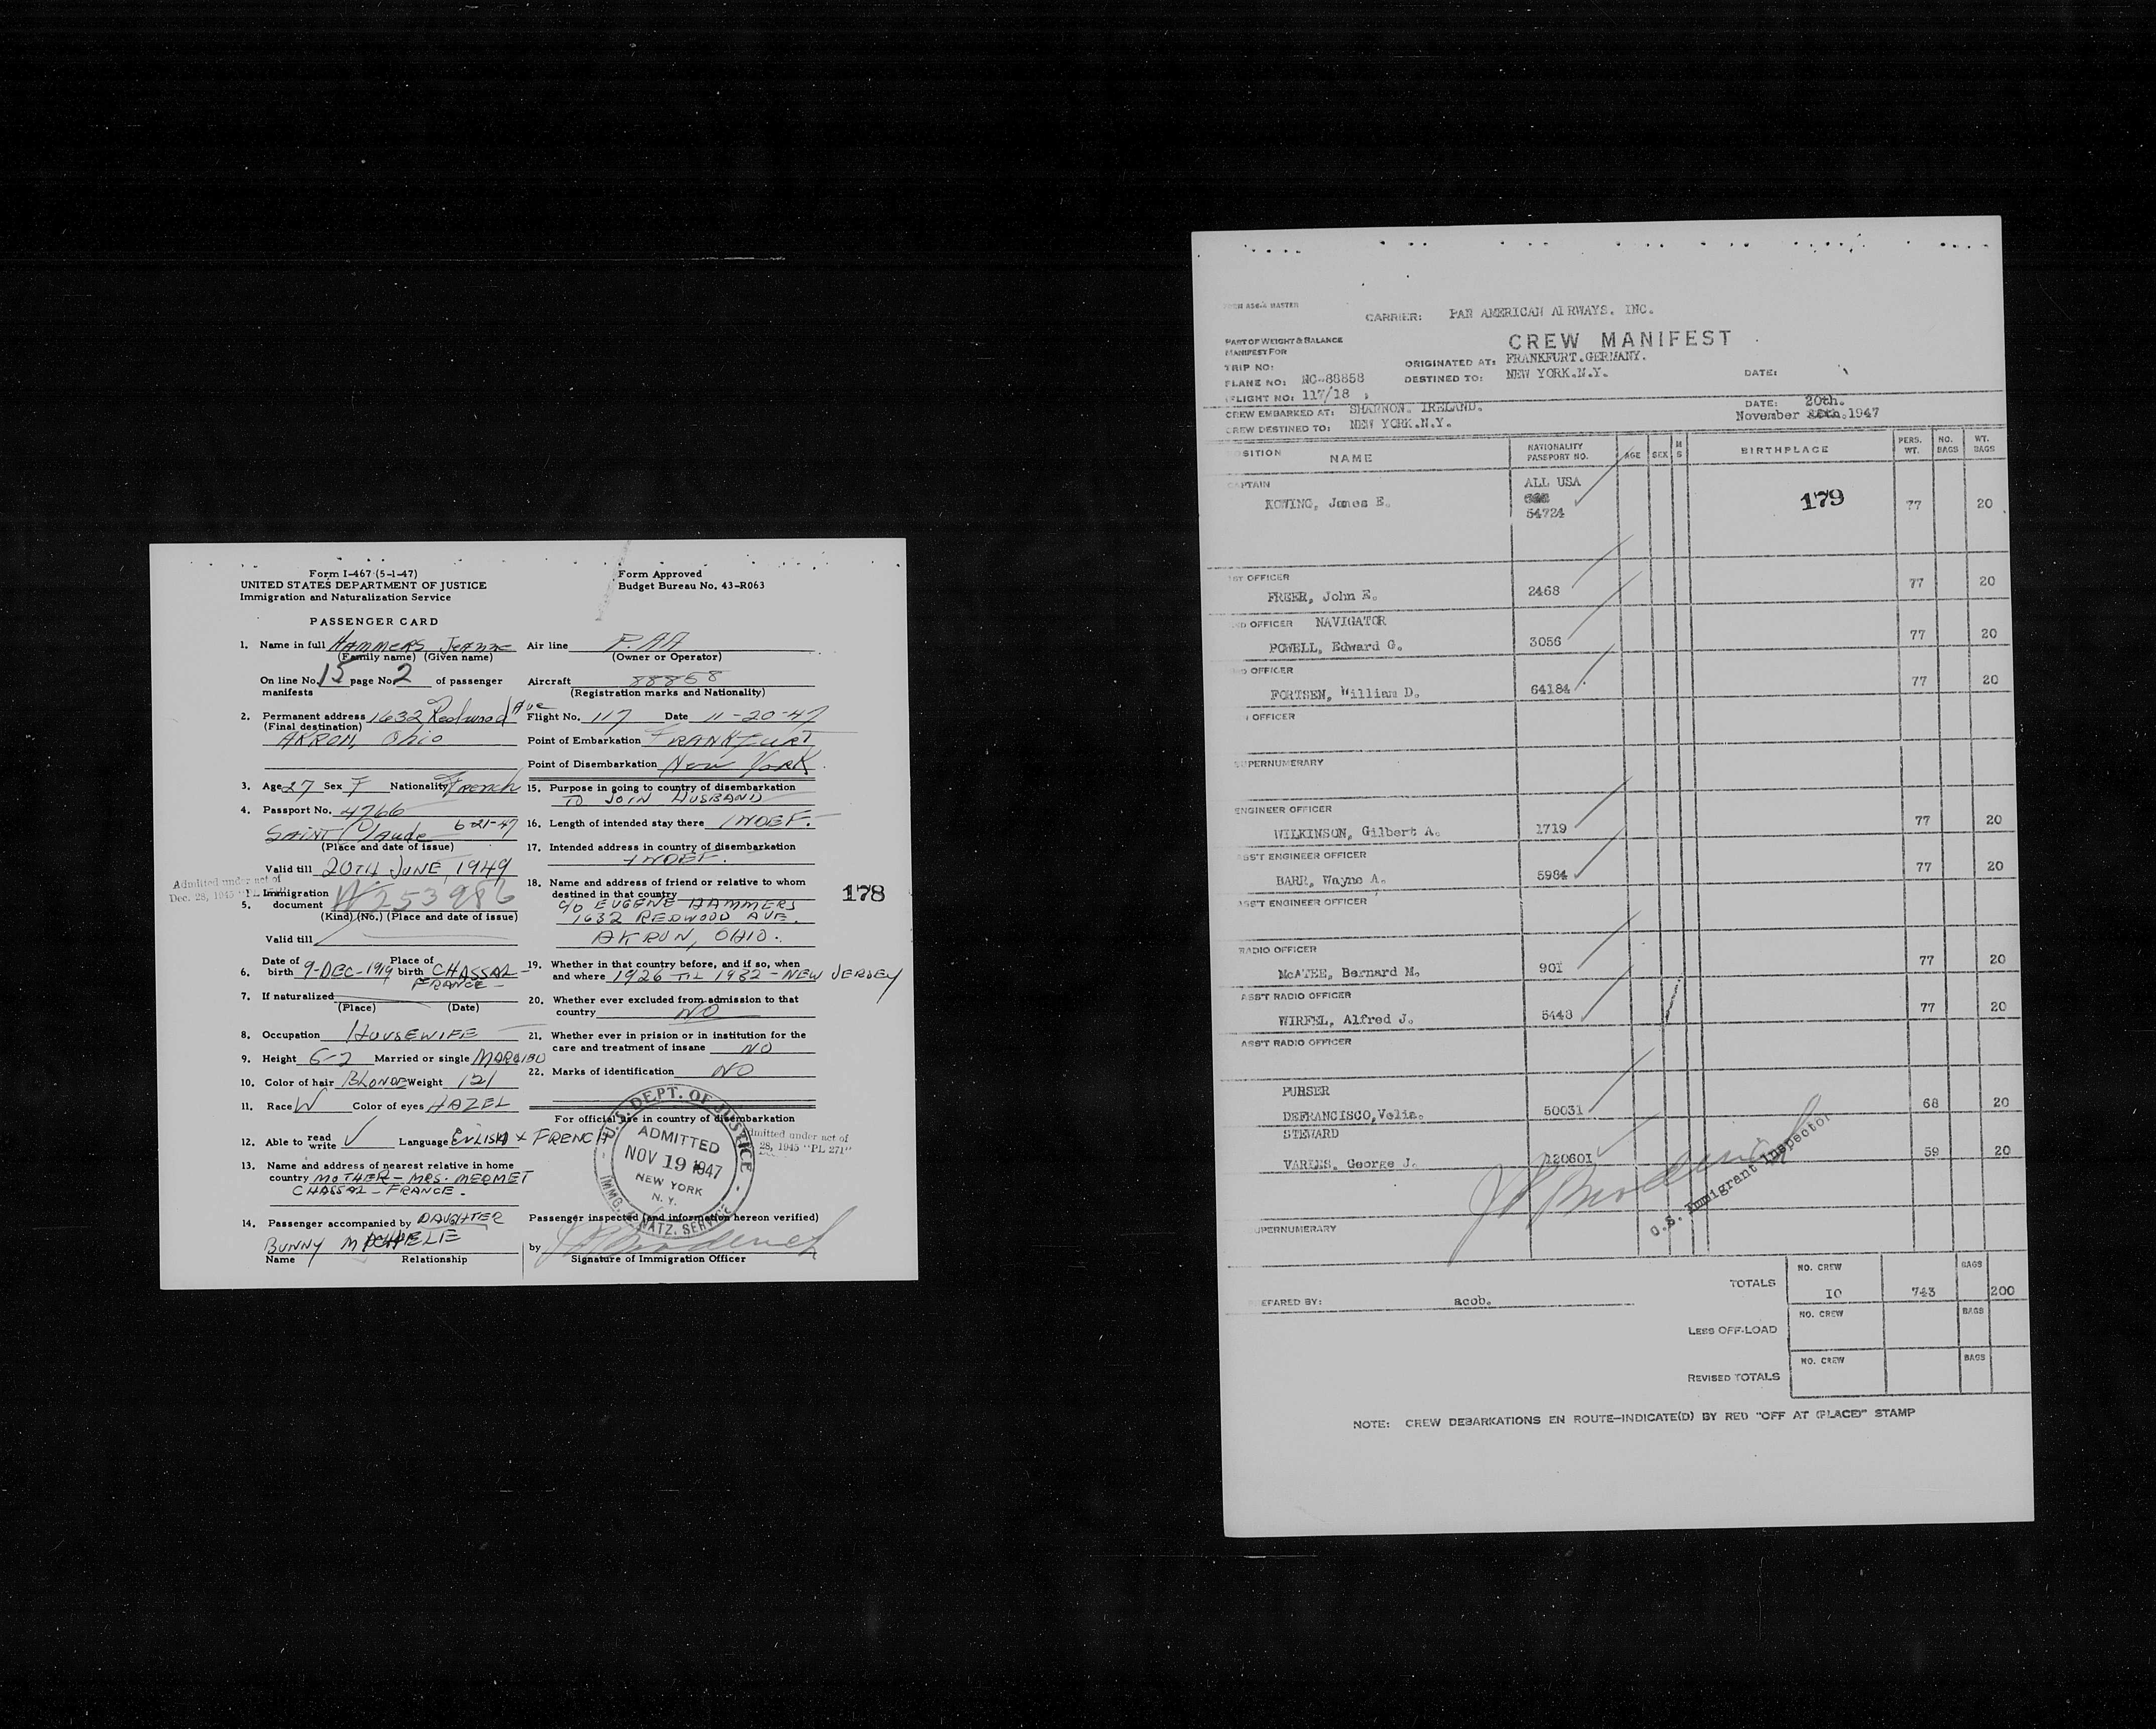 Form I-467 (5-1-47)
UNITED STATES DEPARTMENT OF JUSTICE
Immigration and Naturalization Service
Form Approved
Budget Bureau No. 43-R063
PASSENGER CARD
1. Name in full HAMMERS JEANNE
(Family name) (Given name)
On line No. 15 page No. 2 of passenger
manifests
2. Permanent address 1632 Redwood Ave
(Final destination)
AKRON, Ohio
3. Age 27 Sex F Nationality French
4. Passport No. 4766
SAINT Claude 6-21-47
(Place and date of issue)
Valid till 20TH JUNE, 1949
Admitted under act of
Dec. 28, 1945 "PL
5. Immigration
document
(Kind) (No.) (Place and date of issue)
Valid till
6. Date of birth 9-DEC-1919 Place of birth CHASSAL-
FRANCE-
7. If naturalized
(Place) (Date)
8. Occupation HOUSEWIFE
9. Height 5-2 Married or single
10. Color of hair BLONDE Weight 121
11. Race W Color of eyes HAZEL
12. Able to read write ✓ Language ENLISH + FRENCH
13. Name and address of nearest relative in home
country MOTHER - MRS. MERMET
CHASSAL - FRANCE.
14. Passenger accompanied by DAUGHTER
BUNNY
Name Relationship
Air line P.AA
(Owner or Operator)
Aircraft 88858
(Registration marks and Nationality)
Flight No. 117 Date 11-20-47
Point of Embarkation FRANKFURT
Point of Disembarkation New York
15. Purpose in going to country of disembarkation
TO JOIN HUSBAND
16. Length of intended stay there INDEF.
17. Intended address in country of disembarkation
INDEF.
18. Name and address of friend or relative to whom
destined in that country
c/o EUGENE HAMMERS
1632 REDWOOD AVE.
AKRON, OHIO.
178
19. Whether in that country before, and if so, when
and where 1926 TIL 1932 - NEW JERSEY
20. Whether ever excluded from admission to that
country NO
21. Whether ever in prision or in institution for the
care and treatment of insane NO
22. Marks of identification NO
For official use in country of disembarkation
U.S. DEPT. OF JUSTICE
ADMITTED
NOV 19 1947
NEW YORK
N.Y.
IMMG. & NATZ. SERVICE
dmitted under act of
28, 1945 "PL 271"
Passenger inspected (and information hereon verified)
by
Signature of Immigration Officer
MASTER
CARRIER: PAN AMERICAN AIRWAYS. INC.
CREW MANIFEST
PART OF WEIGHT & BALANCE
MANIFEST FOR
TRIP NO:
ORIGINATED AT: FRANKFURT.GERMANY.
PLANE NO: NC-88858
DESTINED TO: NEW YORK.N.Y. DATE:
FLIGHT NO: 117/18
CREW EMBARKED AT: SHANNON. IRELAND. DATE: 20th.
November 1947
CREW DESTINED TO: NEW YORK.N.Y.
POSITION NAME NATIONALITY PASSPORT NO. AGE SEX M S BIRTHPLACE PERS. WT. NO. BAGS WT. BAGS
CAPTAIN ALL USA
KOWING, James E. 54724 179 77 20
1ST OFFICER
FREER, John E. 2468 77 20
OFFICER NAVIGATOR
POWELL, Edward G. 3056 77 20
OFFICER
FORTSEN, William D. 64184 77 20
OFFICER
SUPERNUMERARY
ENGINEER OFFICER
WILKINSON, Gilbert A. 1719 77 20
ASS'T ENGINEER OFFICER
BARR, Wayne A. 5984 77 20
ASS'T ENGINEER OFFICER
RADIO OFFICER
McATEE, Bernard M. 901 77 20
ASS'T RADIO OFFICER
WIRFEL, Alfred J. 5448 77 20
ASS'T RADIO OFFICER
PURSER
DEFRANCISCO,Velia. 50031 68 20
STEWARD
VARLES, George J. 120601 59 20
U.S. Immigrant Inspector
SUPERNUMERARY
PREPARED BY: acob.
TOTALS NO. CREW 10 743 BAGS 200
LESS OFF-LOAD NO. CREW BAGS
REVISED TOTALS NO. CREW BAGS
NOTE: CREW DEBARKATIONS EN ROUTE—INDICATE(D) BY RED "OFF AT (PLACE)" STAMP